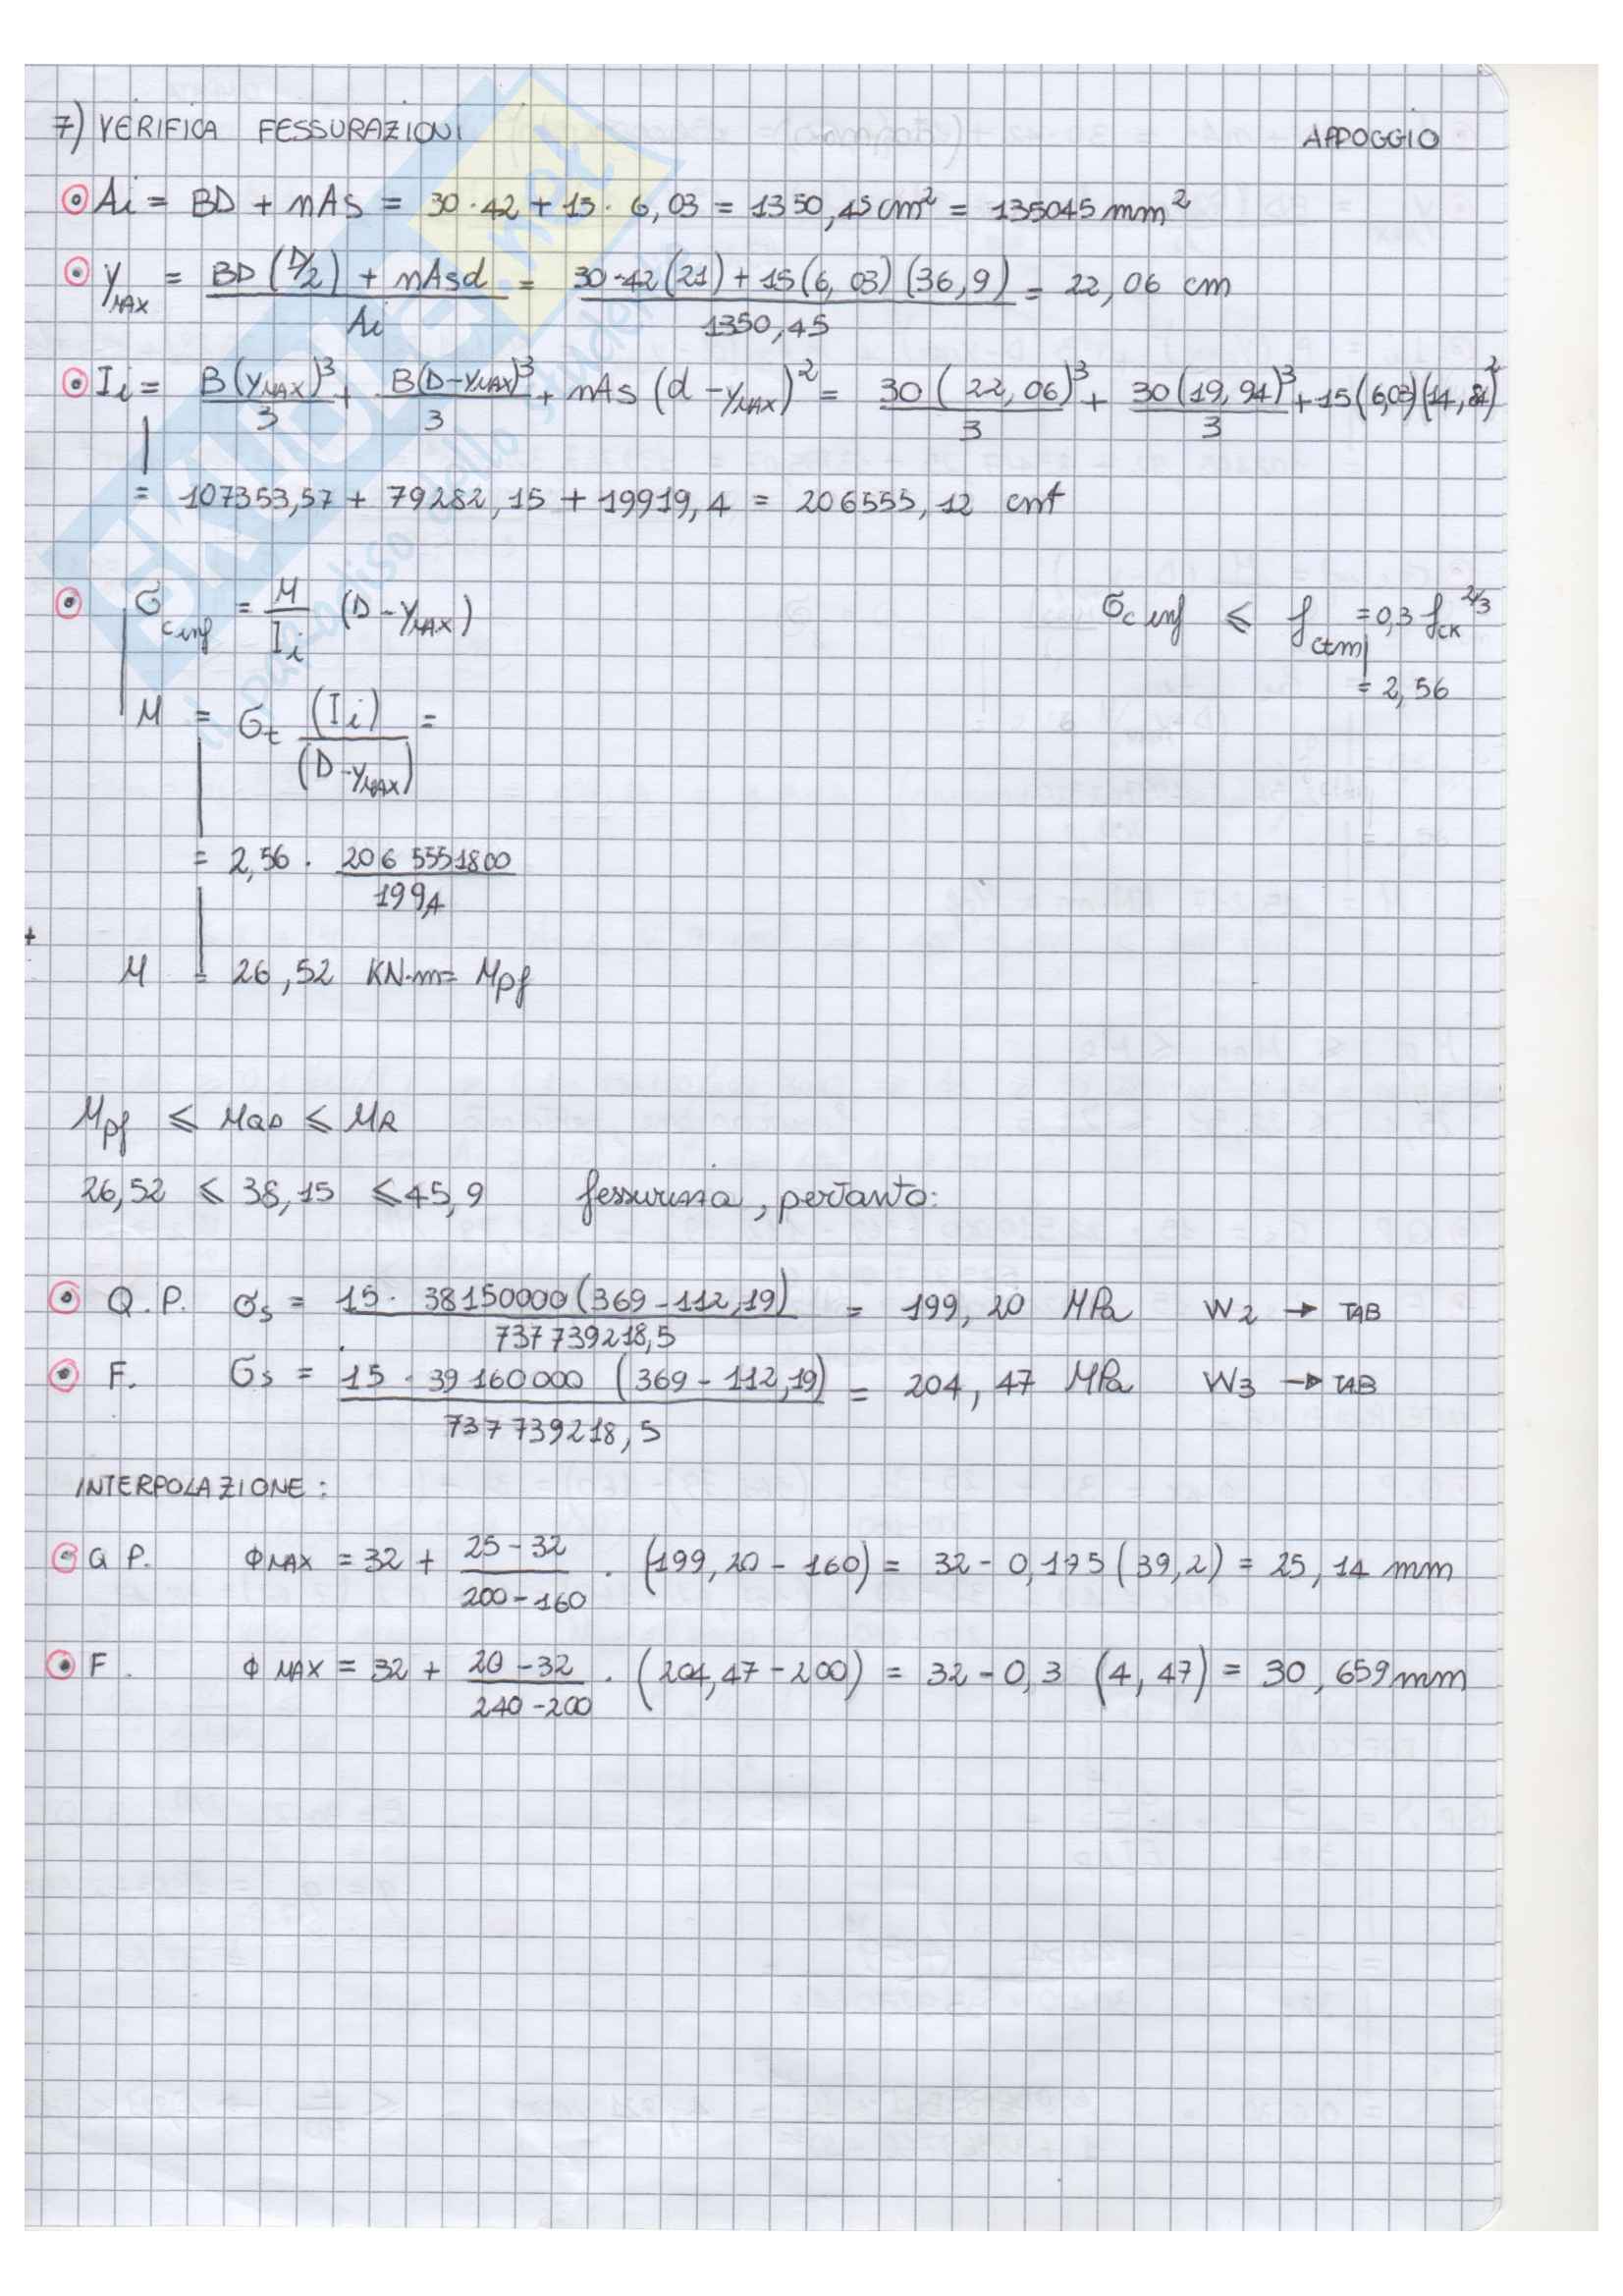 7) VERIFICA FESSURAZIONI APPOGGIO
Ai = BD + nAs = 30·42 + 15·6,03 = 1350,45 cm² = 135045 mm²
yMAX = (BD (D/2) + nAsd) / Ai = (30·42 (21) + 15 (6,03) (36,9)) / 1350,45 = 22,06 cm
Ii = B(yMAX)³/3 + B(D-yMAX)³/3 + nAs (d - yMAX)² = 30 (22,06)³/3 + 30 (19,94)³/3 + 15 (6,03) (14,84)²
= 107353,57 + 79282,15 + 19919,4 = 206555,12 cm⁴
σc inf = M/Ii (D - yMAX) σc inf ⩽ fctm = 0,3 fck^2/3
= 2,56
M = σt (Ii)/(D-yMAX) =
= 2,56 · 2065551800/199,4
M = 26,52 KN·m = Mpf
Mpf ⩽ MQP ⩽ MR
26,52 ⩽ 38,15 ⩽ 45,9 fessurizza, pertanto:
Q.P. σs = 15 · 38150000 (369 - 112,19) / 737739218,5 = 199,20 MPa W2 → TAB
F. σs = 15 · 39160000 (369 - 112,19) / 737739218,5 = 204,47 MPa W3 → TAB
INTERPOLAZIONE:
Q P. ΦMAX = 32 + (25-32)/(200-160) · (199,20 - 160) = 32 - 0,175 (39,2) = 25,14 mm
F. ΦMAX = 32 + (20-32)/(240-200) · (204,47 - 200) = 32 - 0,3 (4,47) = 30,659 mm
SKUOLA.net